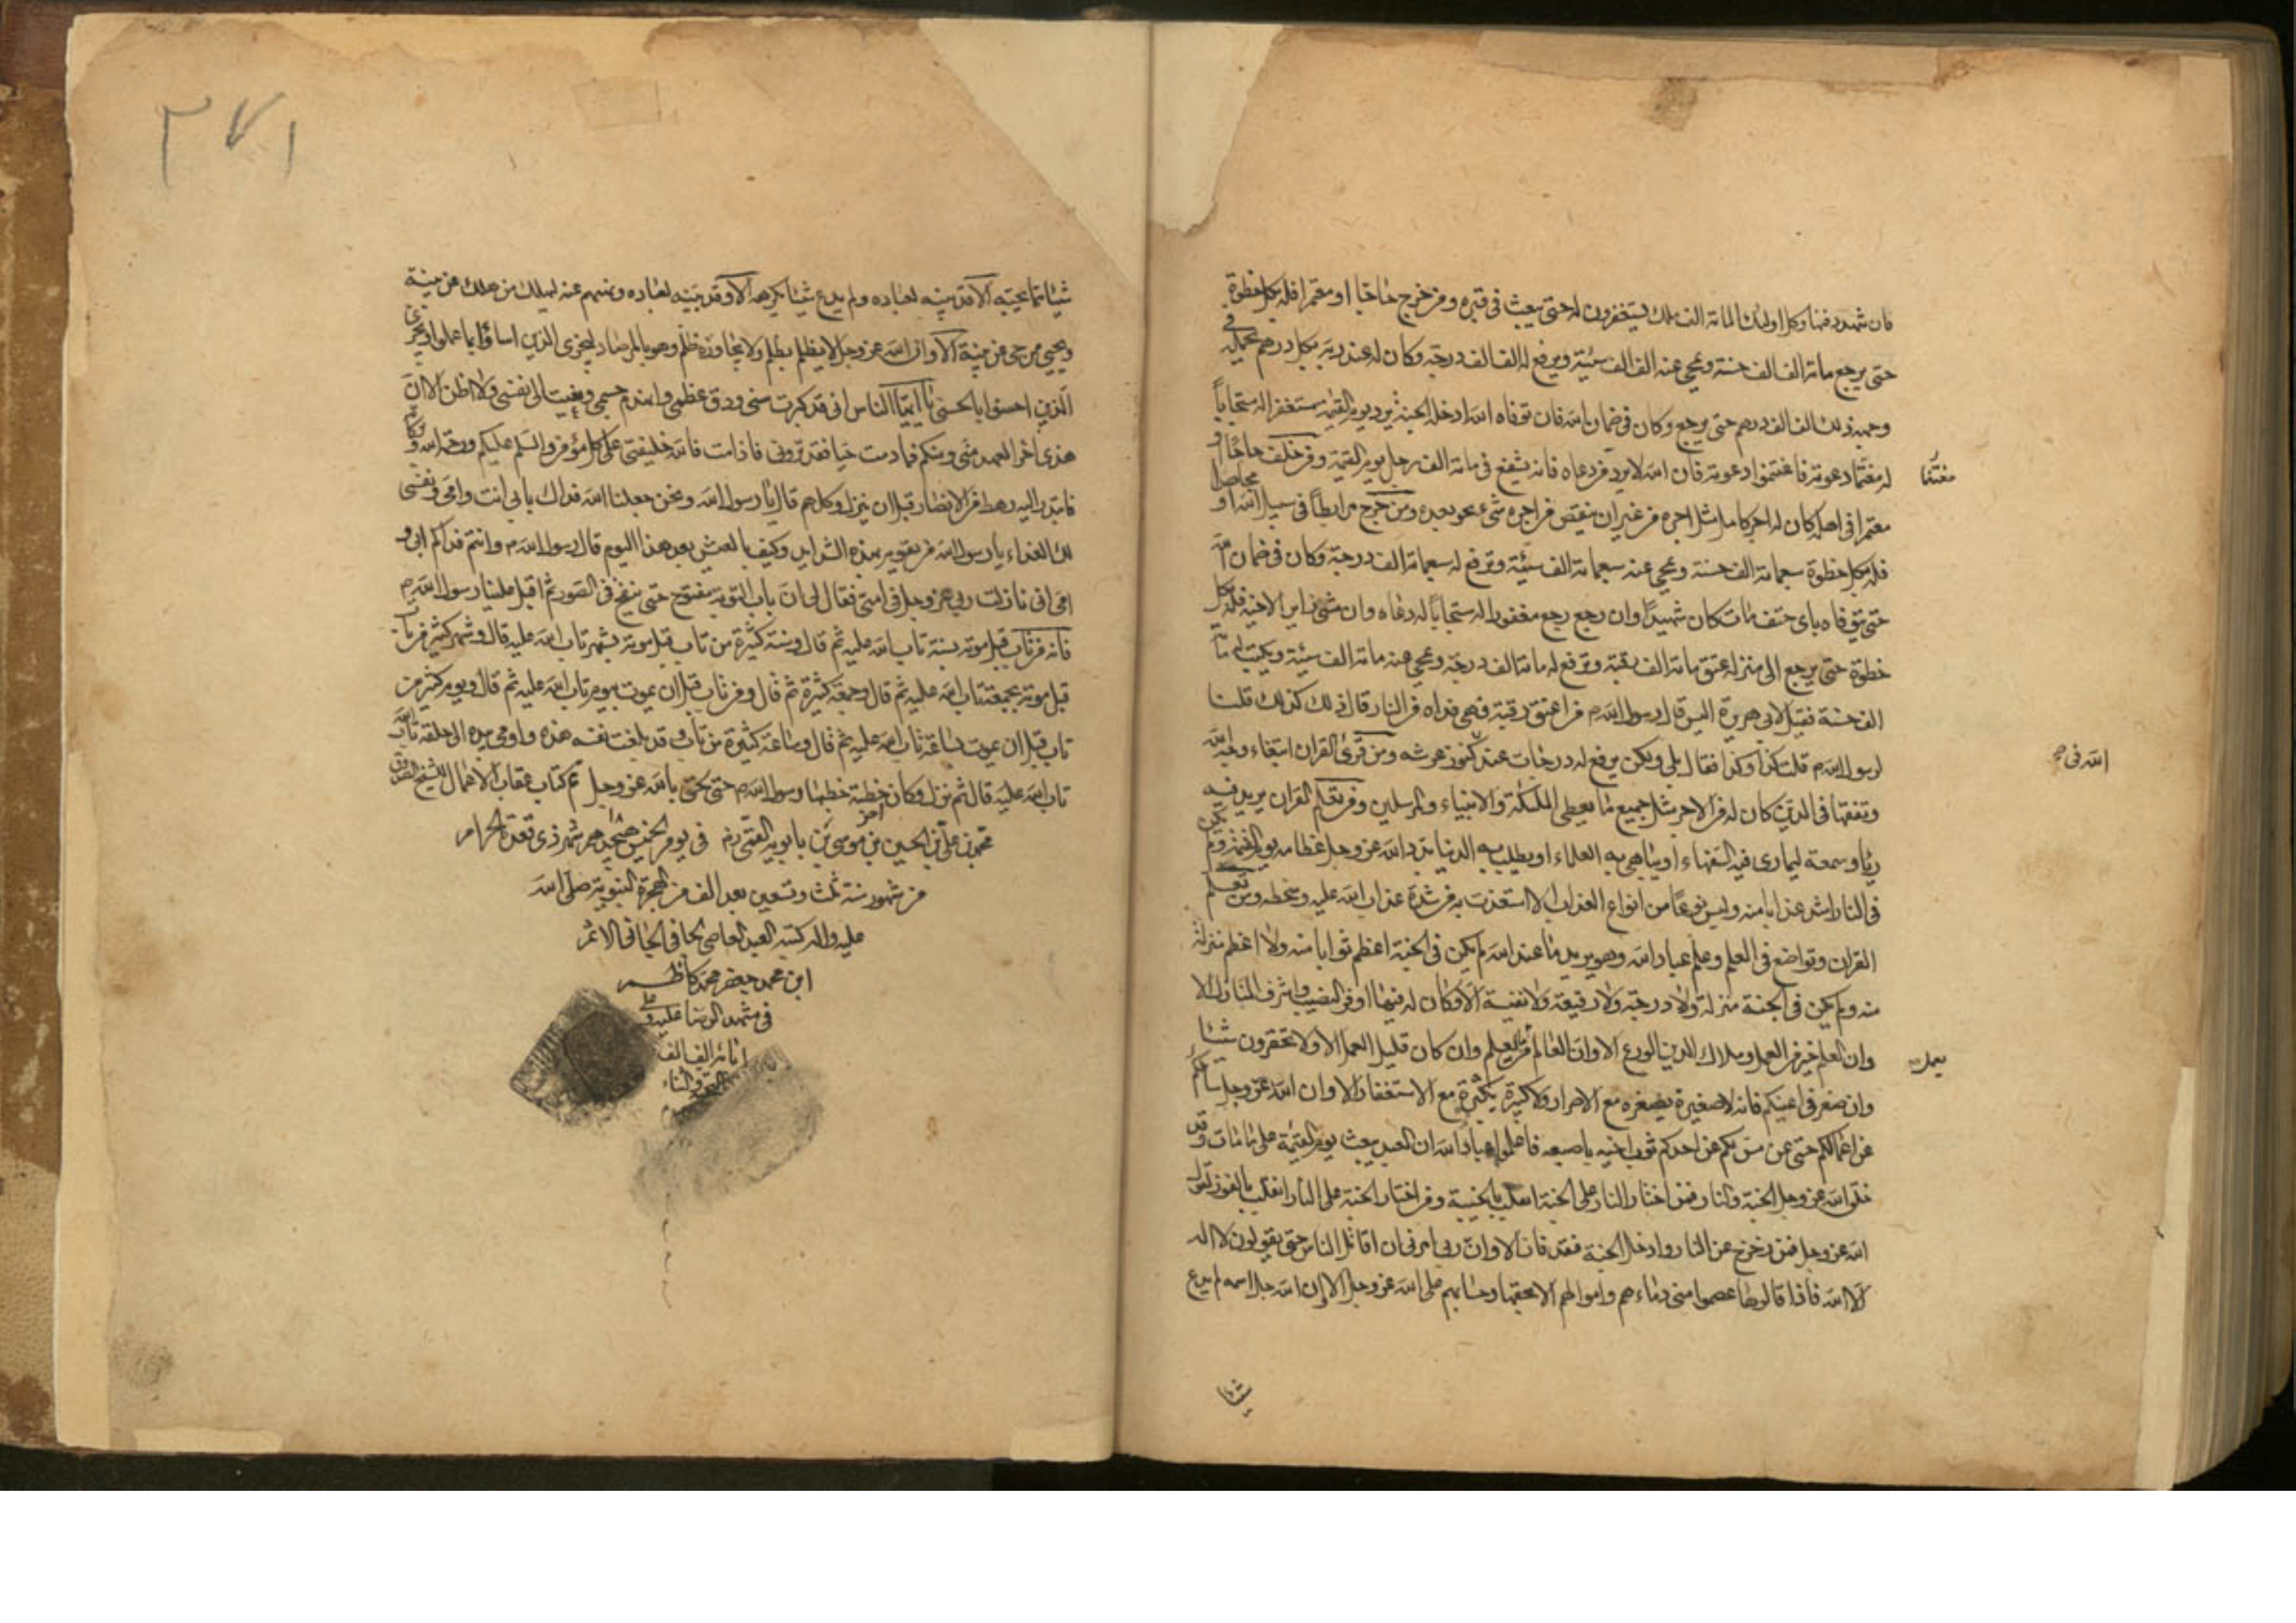 فان شهد دفنها وكل اولئك المائة الف ملك يستغفرون له حتى يبعث فى قبره ومن خرج حاجا او معتمرا فله بكل خطوة
حتى يرجع مائة الف الف حسنة ويمحى عنه الف الف سيئة ويرفع له الف الف درجة وكان له عند ربه بكل درهم يحمله فى
وجهه ذلك الف الف درهم حتى يرجع وكان فى ضمان الله فان توفاه الله ادخله الجنة مستجابا
له فاغتنموا دعوته فان الله لا يرد دعاه فانه يشفع فى مائة الف رجل يوم القيمة ومن خلف حاجا او
مغتنما
معتمرا فى اهله كان له اجر كامل مثل اجره من غير ان ينقص من اجره شىء ومن خرج مرابطا فى سبيل الله او مجاهدا
فله بكل خطوة سبعمائة الف حسنة ويمحى عنه سبعمائة الف سيئة وترفع له سبعمائة الف درجة وكان فى ضمان الله
حتى يتوفاه باى حتف مات كان شهيدا وان رجع رجع مغفورا له مستجابا له دعاه وان مشى زاير الاخيه فله بكل
خطوة حتى يرجع الى منزله عتق مائة الف رقبة وترفع له مائة الف درجة ويمحى عنه مائة الف سيئة ويكتب له مائة
الف حسنة فقيل لابى هريرة اليس قال رسول الله ص من اعتق رقبة فهى فداه من النار قال ذلك كذلك قلنا
لرسول الله ص قلت كذا وكذا فقال بلى ولكن يرفع له درجات عند كنوز عرشه ومن قرئ القران ابتغاء وجه الله
الله فى
وتفقها فى الدين كان له من الاجر مثل جميع ما يعطى الملئكة والانبياء والمرسلين ومن تعلم القران يريد فيه
رياء وسمعة ليمارى فيه السفهاء او يباهى به العلماء او يطلب به الدنيا بدد الله عز وجل عظامه يوم القيمة ولم يكن
فى النار اشد عذابا منه وليس نوعا من انواع العذاب الا من شدة عذاب الله عليه وسخطه ومن تعلم
القران وتواضع فى العلم وعلم عباد الله وهو يريد ما عند الله لم يكن فى الجنة اعظم ثوابا منه ولا اعظم منزلة
منه ولم يكن فى الجنة منزلة ولا درجة رفيعة ولا نفيسة الا وكان له فيها اوفر النصيب واشرف المنازل الا
وان العلم خير من العمل وملاك الدين الورع الا وان العالم من يعمل بالعلم وان كان قليل العمل الا ولا تحقرون شيئا
يعمل
وان صغر فى اعينكم فانه لا صغيرة بصغيرة مع الاصرار ولا كبيرة بكبيرة مع الاستغفار الا وان الله عز وجل سائلكم
عن اعمالكم حتى عن مس احدكم ثوب اخيه باصبعه فاعلموا عباد الله ان العبد يبعث يوم القيمة على ما مات وقد
خلق الله عز وجل الجنة والنار فمن اختار النار على الجنة انقلب بالخيبة ومن اختار الجنة على النار انقلب بالفوز لقول
الله عز وجل فمن زحزح عن النار وادخل الجنة فقد فاز الا وان ربى امرنى ان اقاتل الناس حتى يقولون لا اله
الا الله فاذا قالوها عصموا منى دماءهم واموالهم الا بحقها وحسابهم على الله عز وجل الا ان الله جل اسمه لم يدع
شيئا
٣٧١
شيئا مما يحبه الا وقد بينه لعباده ولم يدع شيئا يكرهه الا وقد بينه لعباده ونهيهم عنه ليهلك من هلك عن بينة
ويحيى من حى عن بينة الا وان الله عز وجل لا يظلم بظلم ولا يجاوزه ظلم وهو بالمرصاد ليجزى الذين اساؤا بما عملوا ويجزى
الذين احسنوا بالحسنى يا ايها الناس انى قد كبرت سنى ودق عظمى وانهدم جسمى ونعيت الى نفسى ولا اظن الا ان
هذى اخر العهد منى ومنكم فما دمت حيا فقد ترونى فاذا مت فالله خليفتى على كل مؤمن والسلم عليكم ورحمة الله وبركاته
فابتدر اليه رهط من الانصار قبل ان ينزل وكلهم قال يا رسول الله ونحن جعلنا الله فداك بابى انت وامى ونفسى
لك الفداء يا رسول الله من يقوم بهذه الشدايد وكيف بالعيش بعد هذا اليوم قال رسول الله ص وانتم فداكم ابى و
امى انى نازلت ربى عز وجل فى امتى فقال لى ان باب التوبة مفتوح حتى ينفخ فى الصور ثم اقبل علينا رسول الله ص
فانه من تاب قبل موته بسنة تاب الله عليه ثم قال وسنة كثيرة من تاب قبل موته بشهر تاب الله عليه قال وشهر كثير من تاب
قبل موته بجمعة تاب الله عليه ثم قال وجمعة كثيرة ثم قال ومن تاب قبل ان يموت بيوم تاب الله عليه ثم قال ويوم كثير من
تاب قبل ان يموت بساعة تاب الله عليه ثم قال وساعة كثيرة من تاب وقد بلغت نفسه هذه واومى بيده الى حلقه تاب الله
تاب الله عليه قال ثم نزل وكان اخر خطبة خطبها رسول الله ص حتى لحق بالله عز وجل تم كتاب عقاب الاعمال للشيخ الصدوق
محمد بن على بن الحسين بن موسى بن بابويه القمى ره فى يوم الخميس ١٨ شهر ذى قعدة الحرام
من شهور سنة ثلث وتسعين بعد الف من الهجرة النبوية صلى الله
عليه واله كتبه العبد العاصى الجافى الجانى الاثم
ابن محمد جعفر محمد كاظم
فى مشهد الرضا عليه و
الف الف
التحية والثناء